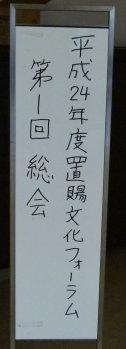 平成24年度置賜文化フォーラム
第1回総会